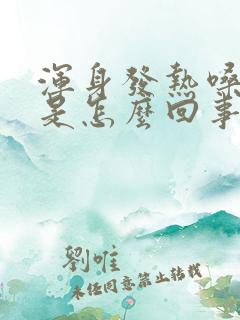 渾身發熱嗓
是怎麼回事
劉唯
未經同意禁止轉載